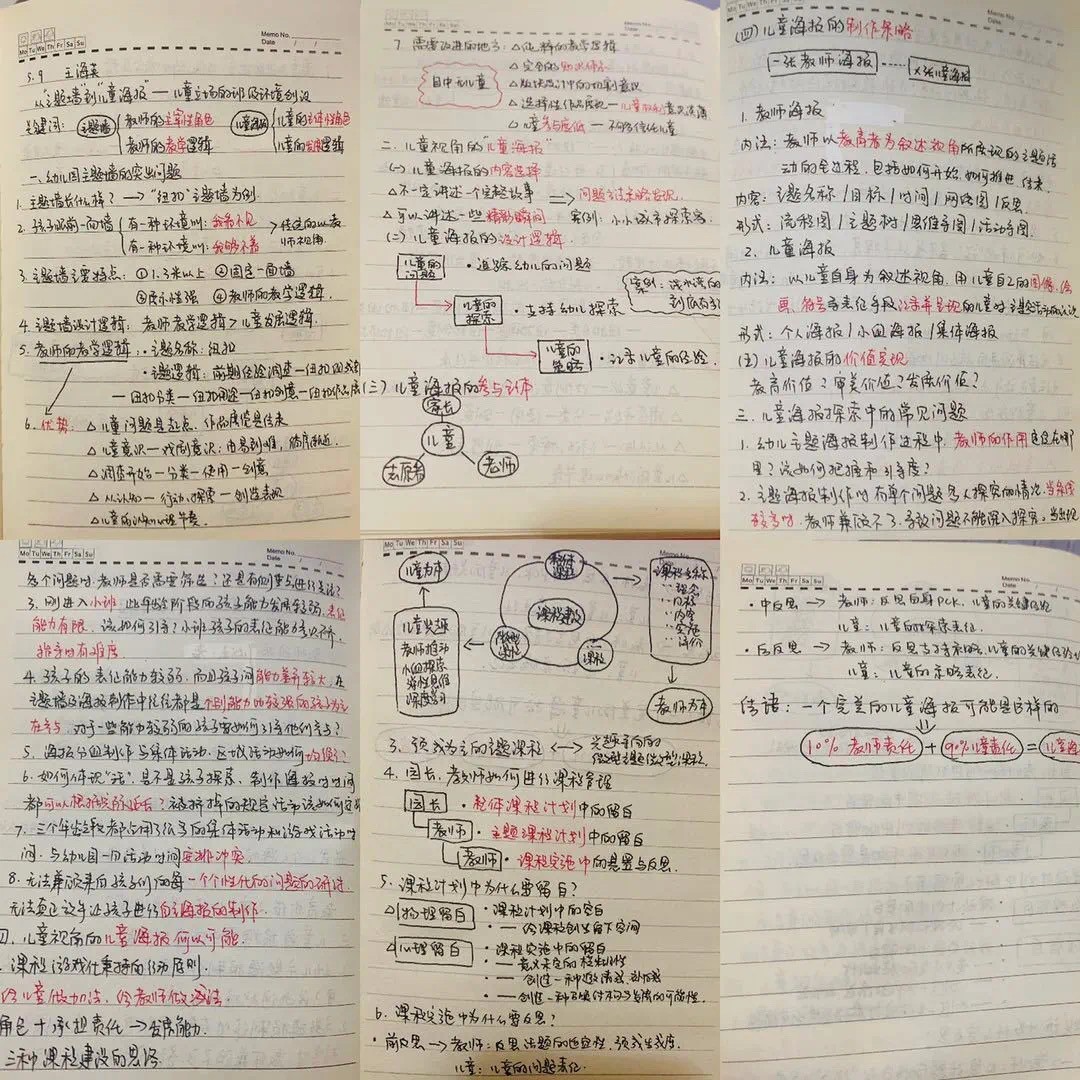 Memo No.
Mo Tu We Th Fr Sa Su
Date / /
5.9 王海英
从"主题墙"到"儿童海报" — 儿童立场的班级环境创设
关键词: 主题墙
教师的主宰性角色
教师的教学逻辑
儿童海报
儿童的主体性角色
儿童的发展逻辑
一、幼儿园主题墙的突出问题
1. 主题墙长什么样? → "纽扣"主题墙为例.
2. 孩子眼前一面墙
有一种环境叫: 我看不见
有一种环境叫: 我够不着
→ 传统的以教师视角.
3. 主题墙主要特点: ①1.3米以上 ②固定一面墙
③展示性强 ④教师的教学逻辑.
4. 主题墙设计逻辑: 教师教学逻辑 > 儿童发展逻辑.
5. 教师的教学逻辑: · 主题名称: 纽扣
· 主题逻辑: 前期经验调查 — 纽扣
— 纽扣分类 — 纽扣用途 — 纽扣创意 — 纽扣作品展
6. 优势: △ 儿童问题是起点, 作品展览是结束
△ 儿童意识 — 规则意识: 由易到难, 循序渐进.
△ 调查开始 — 分类 — 使用 — 创意
△ 从认知 — 行动、探索 — 创造表现
△ 儿童的
Mo Tu We Th Fr Sa Su
Memo No.
Date / /
7. 需要改进的地方: △ 教学逻辑
△ 完全的知识体系
△ 版块设计中的切割意识
△ 选择性作品展现 — 儿童权利意识淡薄
△ 儿童参与度低 — 不够信任儿童
目中无儿童
二. 儿童视角的"儿童海报"
(一) 儿童海报的内容选择
△ 不一定讲述一个完整故事 ⇒ 问题、过程、策略、发现.
△ 可以讲述一些精彩瞬间 案例: 小小城市探索家.
(二) 儿童海报的设计逻辑.
儿童的问题 · 追踪幼儿的问题
儿童的探索 · 支持幼儿探索
儿童的策略 · 记录儿童的经验.
案例: 浅水湾的
(三) 儿童海报的参与主体
家长
儿童
教师
Mo Tu We Th Fr Sa Su
Memo No.
Date / /
(四) 儿童海报的制作策略
一张教师海报 ······ X张儿童海报
1. 教师海报
内涵: 教师以教育者为叙述视角所展现的主题活
动的全过程, 包括如何开始、如何推进、结束.
内容: 主题名称 / 目标 / 时间 / 网络图 / 反思.
形式: 流程图 / 主题树 / 思维导图 / 活动导图.
2. 儿童海报
内涵: 以儿童自身为叙述视角, 用儿童自己的图像、绘
画、符号等表征手段记录并呈现的儿童对主题活动的认识
形式: 个人海报 / 小组海报 / 集体海报
(五) 儿童海报的价值实现
教育价值? 审美价值? 发展价值?
三. 儿童海报探索中的常见问题
1. 幼儿主题海报制作过程中, 教师的作用应该在哪
里? 该如何把握和引导度?
2. 主题海报制作时有单个问题多人探究的情况, 当条线
较多时, 教师兼顾不了, 导致问题不能深入探究. 当出现
Mo Tu We Th Fr Sa Su
Memo No.
Date / /
多个问题时, 教师是否需要筛选? 还是有侧重点进行关注?
3. 刚进入小班, 此年龄阶段的孩子能力发展较弱, 表征
能力有限, 该如何引导? 小班孩子的表征能力差异不齐,
指导时有难度.
4. 孩子的表征能力较弱, 而且孩子间能力差异较大, 在
主题墙及海报制作中往往都是个别能力比较强的孩子为主
在参与, 对于一些能力较弱的孩子要如何引导他们参与?
5. 海报分组制作与集体活动、区域活动如何均衡?
6. 如何体现"活", 是不是孩子探索、制作海报时时间
都可以根据实际延长? 被挤掉的规定活动该如何
7. 三个年龄段都占用了很多的集体活动和游戏活动时
间, 与幼儿园一日活动时间安排冲突.
8. 无法兼顾来自孩子们的每一个个性化的问题的研讨.
无法真正放手让孩子进行自主海报的制作.
四. 儿童视角的儿童海报何以可能.
课程游戏化秉持的行动原则.
给儿童做加法, 给教师做减法.
角色 + 承担责任 → 发展能力.
三种课程建设的思路.
Mo Tu We Th Fr Sa Su
儿童为本
儿童兴趣
教师推动
小组探索
弹性思维
深度学习
整体课程
课程建设
微型课程
课程
课程名称
· 理念
· 目标
· 内容
· 实施
· 评价
教师为本
3. 预成为主的主题课程 ↔ 兴趣导向的
微型主题/微型课程.
4. 园长、教师如何进行课程管理
园长 · 整体课程计划中的留白
教师 · 主题课程计划中的留白
教师 · 课程实施中的悬置与反思.
5. 课程计划中为什么要留白?
△ 物理留白 · 课程计划中的空白
· — 给课程创生留下空间
△ 心理留白 · 课程实施中的留白
· — 意义未定的模糊性
· — 创造一种邀请或
· — 创造一种
6. 课程实施中为什么要反思?
· 前反思 → 教师: 反思主题的适宜性, 预成生成度.
儿童: 儿童的问题表征.
Mo Tu We Th Fr Sa Su
Memo No.
Date / /
· 中反思 → 教师: 反思自身PCK, 儿童的关键经验
儿童: 儿童的探索表征.
· 后反思 → 教师: 反思支持策略, 儿童的关键经验
儿童: 儿童的策略表征.
结语: 一个完美的儿童海报可能是这样的
10% 教师责任 + 90% 儿童责任 = 儿童海